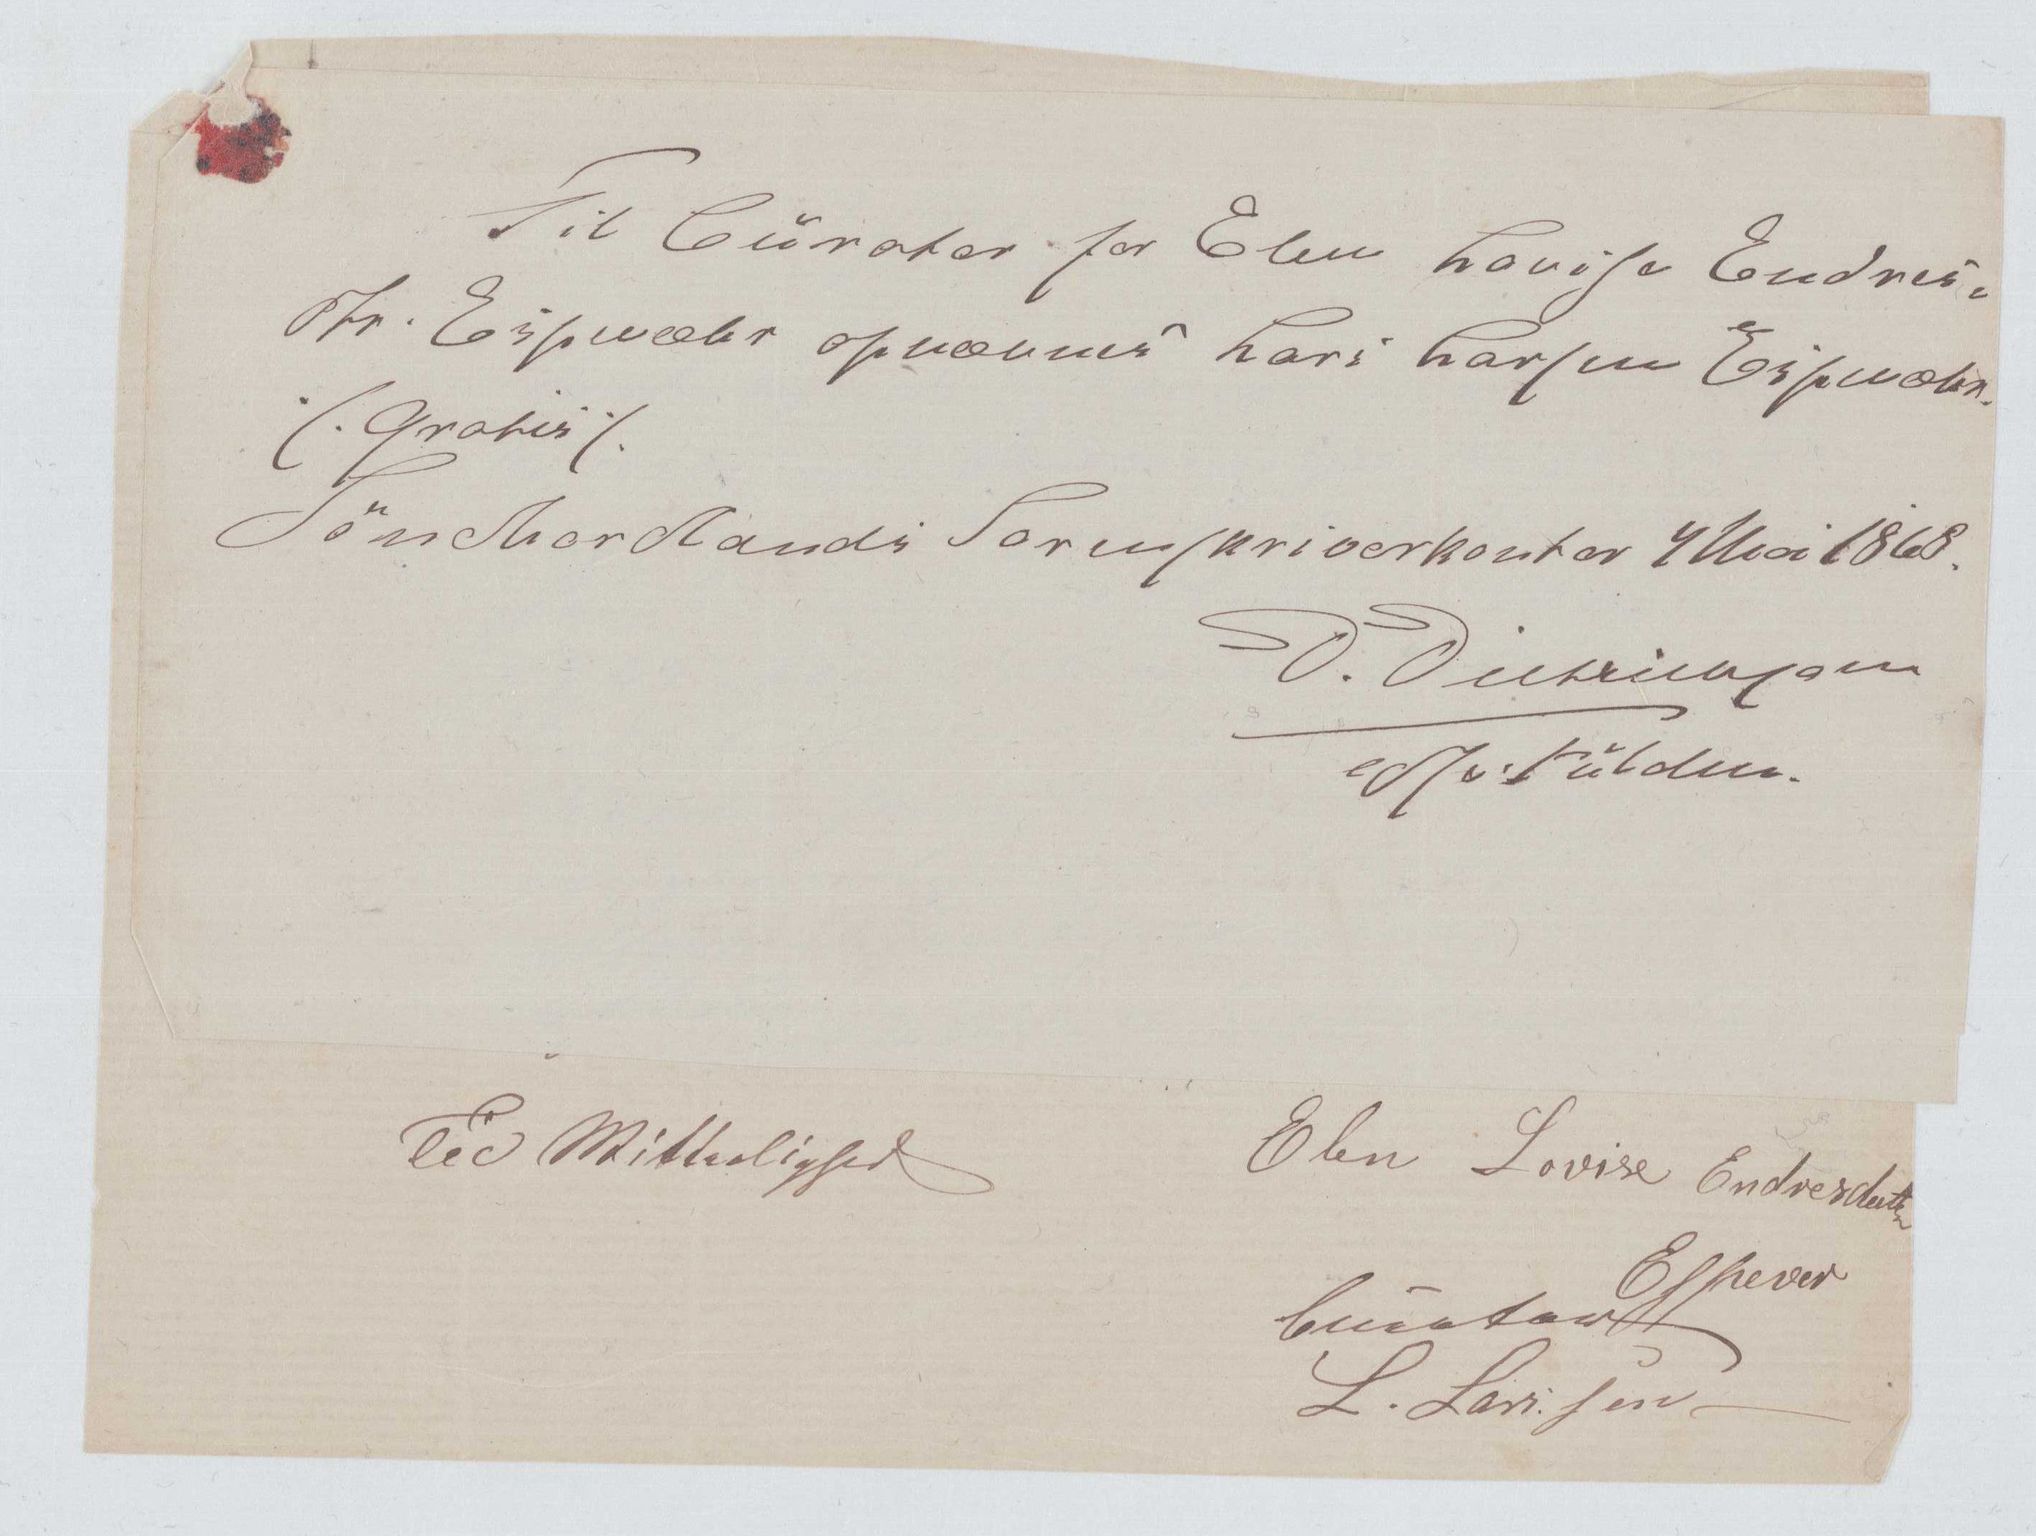 Til Curator for Elen Lovise Endres-
dtr. Espevær opnævnes Lars Larsen Espevær.
/: Gratis :/
Søndhordlands Sorenskriverkontor 4 Mai 1868.
D. Dietrichson
Ved Mitunderligged
Elen Lovise Endresdatter
Espever
Curator
L. Larsen